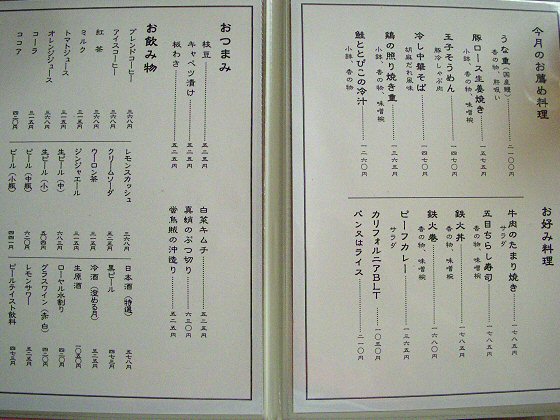 今月のお薦め料理
うな重(国産鰻)……二一〇〇円
香の物、肝吸い
豚ロース生姜焼き……一五七五円
小鉢、香の物、味噌椀
玉子そうめん……一四七〇円
豚冷しゃぶ肉
冷し中華そば……一四七〇円
胡麻だれ風味
鶏の照り焼き重……一三六五円
小鉢、香の物、味噌椀
鮭ととびこの冷汁……一二六〇円
小鉢、香の物
お好み料理
牛肉のたまり焼き……一七八五円
サラダ
五目ちらし寿司……一七八五円
香の物、味噌椀
鉄火丼……一七八五円
香の物、味噌椀
鉄火巻……一六八〇円
香の物、味噌椀
ビーフカレー……一三六五円
サラダ
カリフォルニアBLT……一〇五〇円
パン又はライス……二一〇円
おつまみ
枝豆……五二五円
キャベツ漬け……五二五円
板わさ……五二五円
白菜キムチ……五二五円
真蛸のぶつ切り……六三〇円
蛍烏賊の沖造り……五二五円
お飲み物
ブレンドコーヒー 三六八円
アイスコーヒー 三六八円
紅茶 三六八円
ミルク 三一五円
トマトジュース 三一五円
オレンジジュース 三六八円
コーラ 三一五円
ココア 四二〇円
レモンスカッシュ 三六八円
クリームソーダ 五二五円
ウーロン茶 三一五円
ジンジャエール 三一五円
生ビール(中) 六八三円
生ビール(小) 五〇四円
ビール(中瓶)
ビール(小瓶) 四四一円
日本酒(特選) 五七八円
黒ビール
冷酒(澄める月)
生原酒 一〇五〇円
ローヤル水割り
グラスワイン(赤・白) 四二〇円
レモンサワー 五二五円
ビールテイスト飲料 四七三円